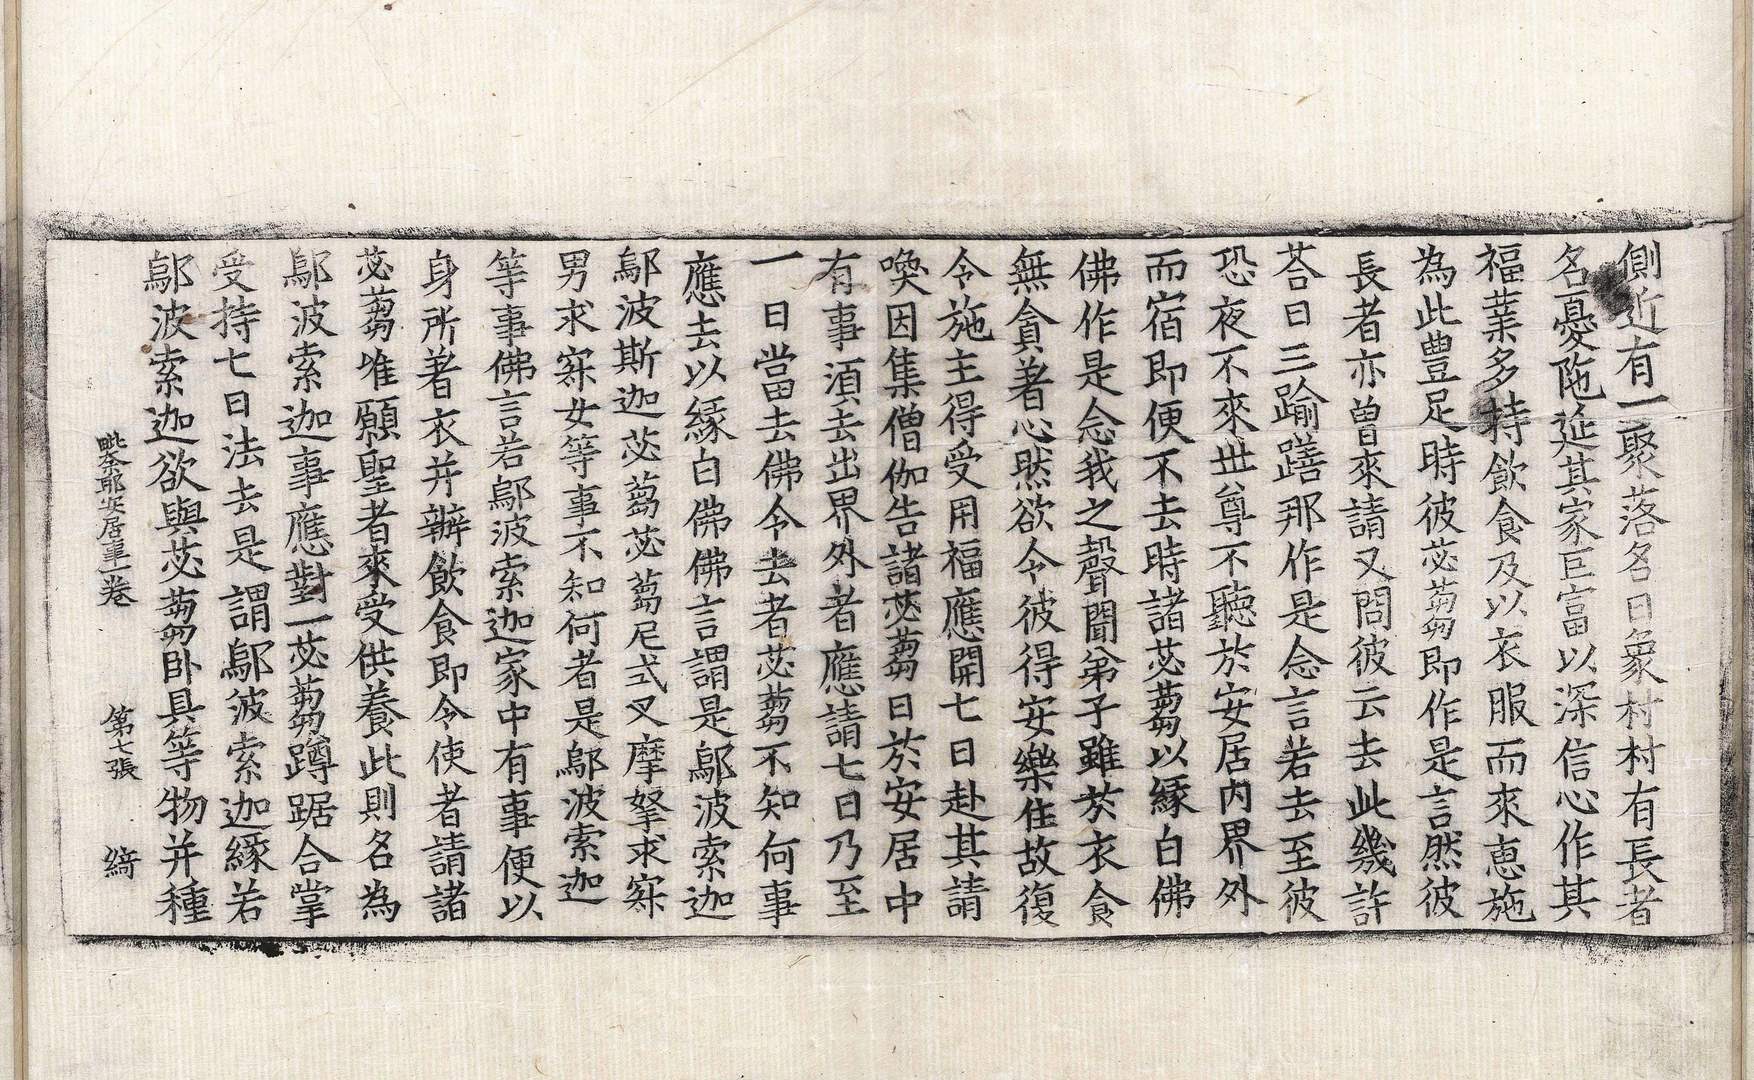 側近有一聚落名曰象村村有長者
名憂陁延其家巨富以深信心作其
福業多持飲食及以衣服而來恵施
為此豊足時彼苾蒭即作是言然彼
長者亦曾來請又問彼云去此幾許
荅曰三踰膳那作是念言若去至彼
恐夜不來世尊不聽於安居内界外
而宿即便不去時諸苾蒭以縁白佛
佛作是念我之聲聞弟子雖於衣食
無貪著心然欲令彼得安樂住故復
令施主得受用福應開七日赴其請
喚因集僧伽告諸苾蒭曰於安居中
有事湏去出界外者應請七日乃至
一日當去佛令去者苾蒭不知何事
應去以縁白佛佛言謂是鄔波索迦
鄔波斯迦苾蒭苾蒭尼式叉摩拏求寂
男求寂女等事不知何者是鄔波索迦
等事佛言若鄔波索迦家中有事便以
身所著衣并辦飲食即令使者請諸
苾蒭唯願聖者來受供養此則名為
鄔波索迦事應對一苾蒭蹲踞合掌
受持七日法去是謂鄔波索迦縁若
鄔波索迦欲與苾蒭卧具等物并種
毗奈耶安居事一卷 第七張 綺